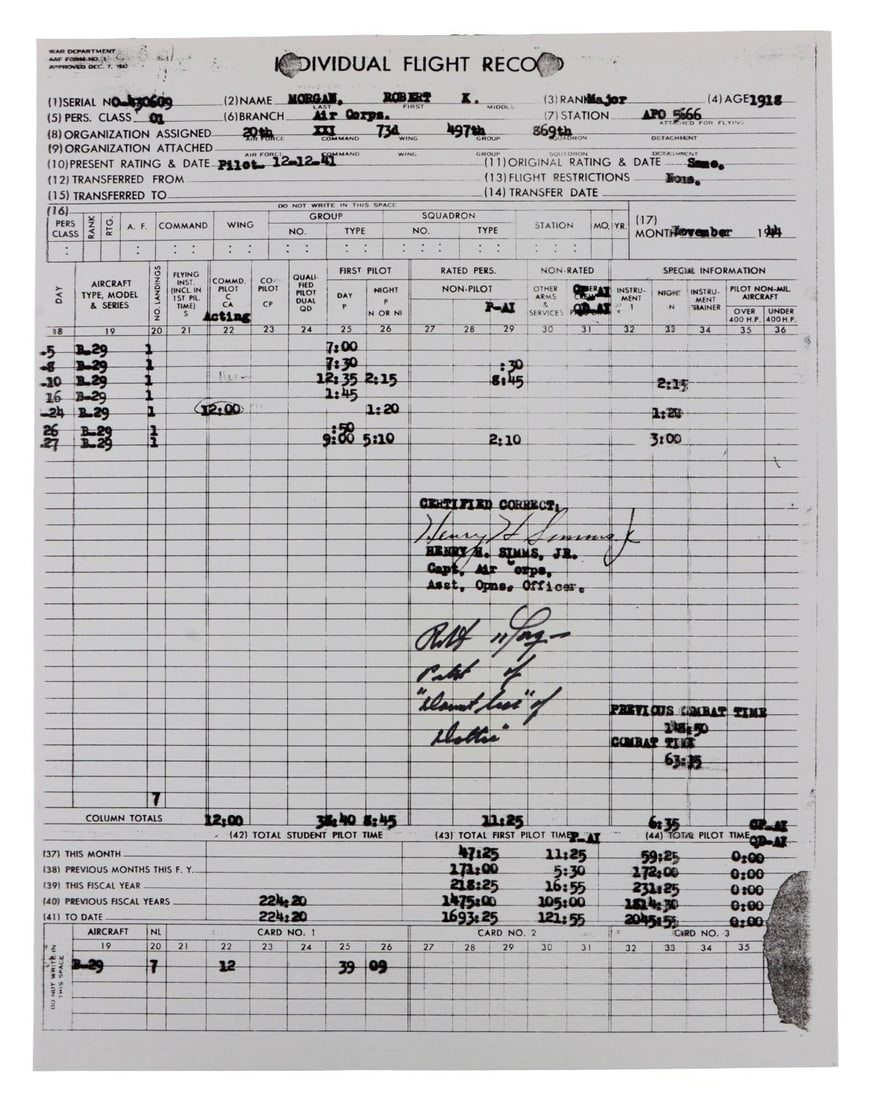 WAR DEPARTMENT
AAF FORM NO. 5
APPROVED DEC. 7,
INDIVIDUAL FLIGHT RECORD
(1) SERIAL NO. O-430609 (2) NAME MORGAN, ROBERT K. (3) RANK Major (4) AGE 1918
LAST FIRST MIDDLE
(5) PERS. CLASS 01 (6) BRANCH Air Corps. (7) STATION APO 5666
(8) ORGANIZATION ASSIGNED 20th XXI 73d 497th 869th ATTACHED FOR FLYING
AIR FORCE COMMAND WING GROUP SQUADRON DETACHMENT
(9) ORGANIZATION ATTACHED
AIR FORCE COMMAND WING GROUP SQUADRON DETACHMENT
(10) PRESENT RATING & DATE Pilot 12-12-41 (11) ORIGINAL RATING & DATE Same.
(12) TRANSFERRED FROM (13) FLIGHT RESTRICTIONS None.
(15) TRANSFERRED TO (14) TRANSFER DATE
(16) DO NOT WRITE IN THIS SPACE
PERS CLASS RANK RTG. A. F. COMMAND WING GROUP NO. TYPE SQUADRON NO. TYPE STATION MO. YR. (17) MONTH November 1944
DAY AIRCRAFT TYPE, MODEL & SERIES NO. LANDINGS FLYING INST. (INCL. IN 1ST PIL. TIME) S COMMD. PILOT C CA Acting CO-PILOT CP QUALIFIED PILOT DUAL QD FIRST PILOT DAY P NIGHT P N OR NI RATED PERS. NON-PILOT P-AI NON-RATED OTHER ARMS & SERVICES CP-AI QD-AI SPECIAL INFORMATION INSTRUMENT I NIGHT N INSTRUMENT TRAINER PILOT NON-MIL. AIRCRAFT OVER 400 H.P. UNDER 400 H.P.
18 19 20 21 22 23 24 25 26 27 28 29 30 31 32 33 34 35 36
-5 B-29 1 7:00
-8 B-29 1 7:30 :30
-10 B-29 1 12:35 2:15 8:45 2:15
16 B-29 1 1:45
-24 B-29 1 12:00 1:20 1:20
26 B-29 1 :50
27 B-29 1 9:00 5:10 2:10 3:00
CERTIFIED CORRECT:
Henry H Simms Jr
HENRY H. SIMMS, JR.
Capt, Air Corps,
Asst, Opns, Officer.
Robt Morgan
Pilot of
"Dauntless" of
Dottie"
PREVIOUS COMBAT TIME
148:50
COMBAT TIME
63:15
7
COLUMN TOTALS 12:00 38:40 8:45 11:25 6:35 CP-AI
(42) TOTAL STUDENT PILOT TIME (43) TOTAL FIRST PILOT TIME P-AI (44) TOTAL PILOT TIME QD-AI
(37) THIS MONTH 47:25 11:25 59:25 0:00
(38) PREVIOUS MONTHS THIS F. Y. 171:00 5:30 172:00 0:00
(39) THIS FISCAL YEAR 218:25 16:55 231:25 0:00
(40) PREVIOUS FISCAL YEARS 224:20 1475:00 105:00 1814:30 0:00
(41) TO DATE 224:20 1693:25 121:55 2045:55 0:00
DO NOT WRITE IN THIS SPACE AIRCRAFT NL CARD NO. 1 CARD NO. 2 CARD NO. 3
19 20 21 22 23 24 25 26 27 28 29 30 31 32 33 34 35
B-29 7 12 39 09